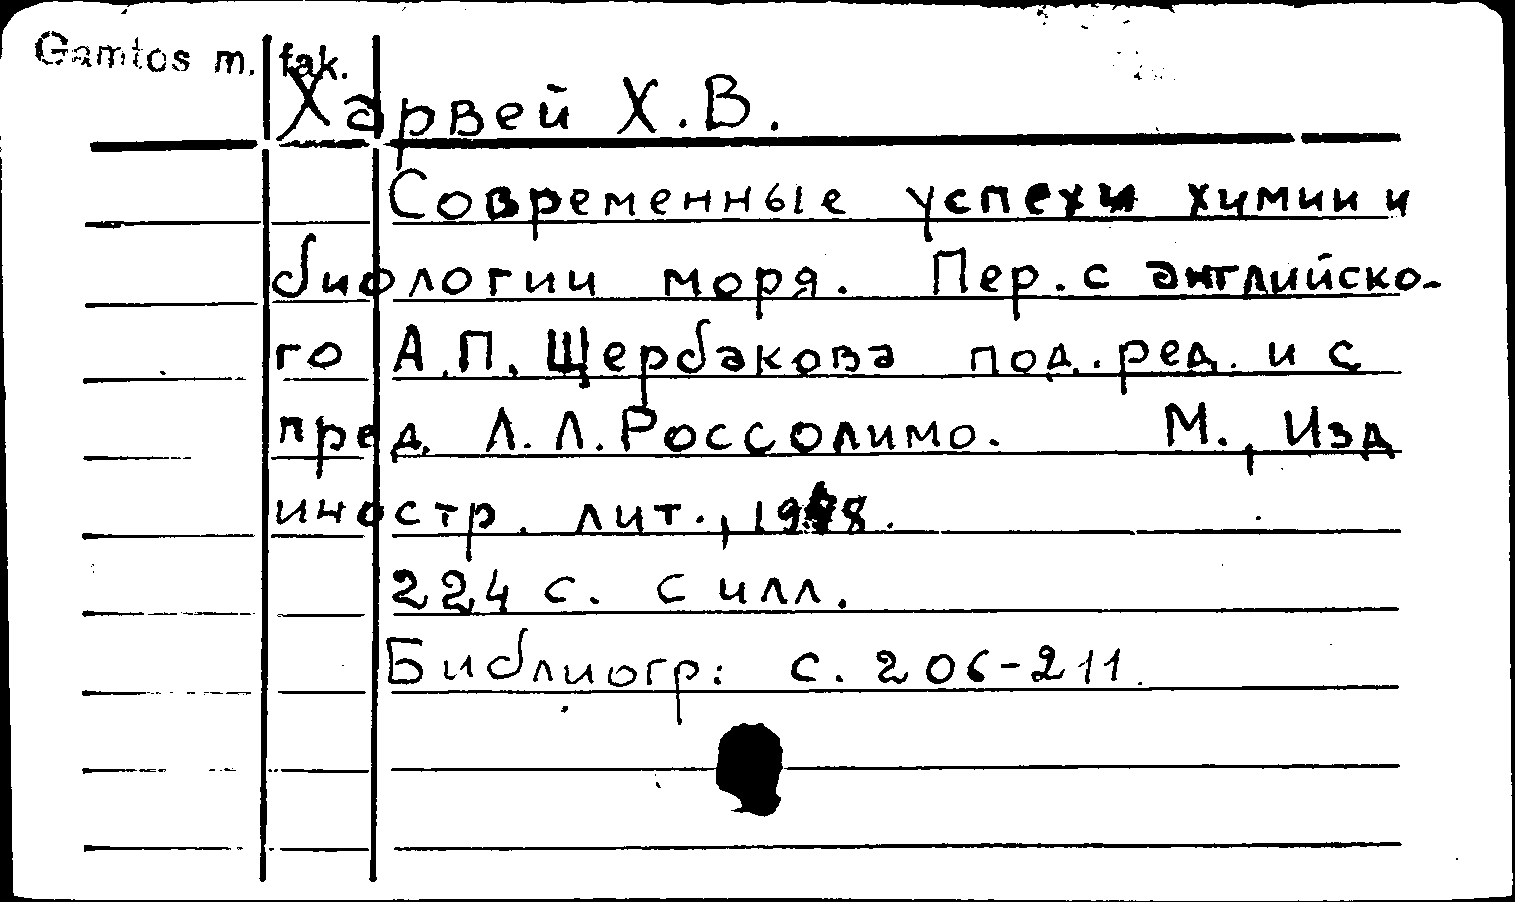 Gamtos m. fak.
Харвей Х.В.
Современные успехи химии и
биологии моря. Пер. с английско-
го А.П. Щербакова под. ред. и с
пред. Л.Л. Россолимо. М., Изд
иностр. лит.,
224 с. с илл.
Библиогр: с. 206-211.